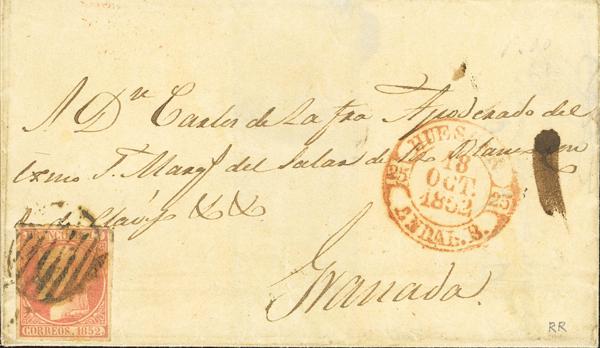 A Dn Carlos de La fra Apoderado del
Exmo S. Marqs del Salar de
XX
Granada.
HUESCA
25 18 25
OCT.
1852
ANDAL. B.
CORREOS. 1852.
RR